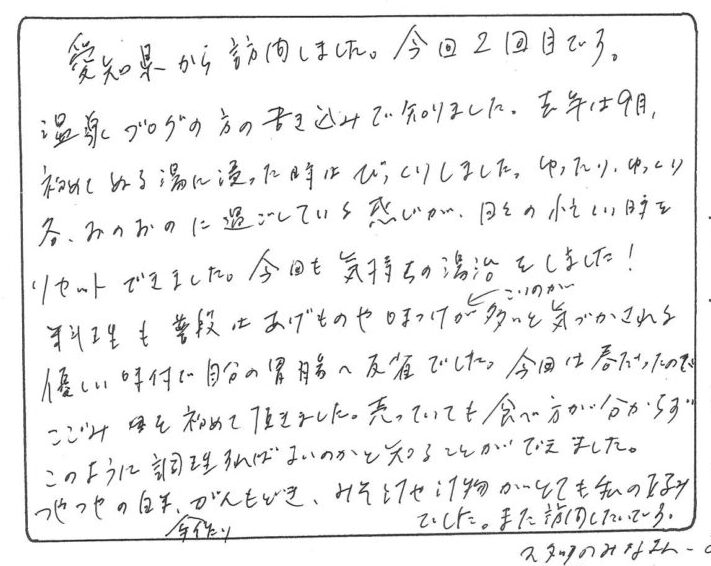 愛知県から訪問しました。今回2回目です。
温泉ブログの方の書き込みで知りました。去年は9月、
初めてぬる湯に浸った時はびっくりしました。ゆったり、ゆっくり
各、おのおのに過ごしている感じが、日々の忙しい時を
リセットできました。今回も気持ちの湯治をしました!
料理も普段はあげものや味つけが
こいのが
多いと気づかされる
優しい味付で自分の胃腸へ反省でした。今回は春だったので
こごみを初めて頂きました。売っていても食べ方が分からず
このように調理すればよいのかと知ることができました。
つやつやの白米、がんもどき、みそ汁や漬物がとても私の好み
手作り
でした。また訪問したいです。
スタッフのみなさん